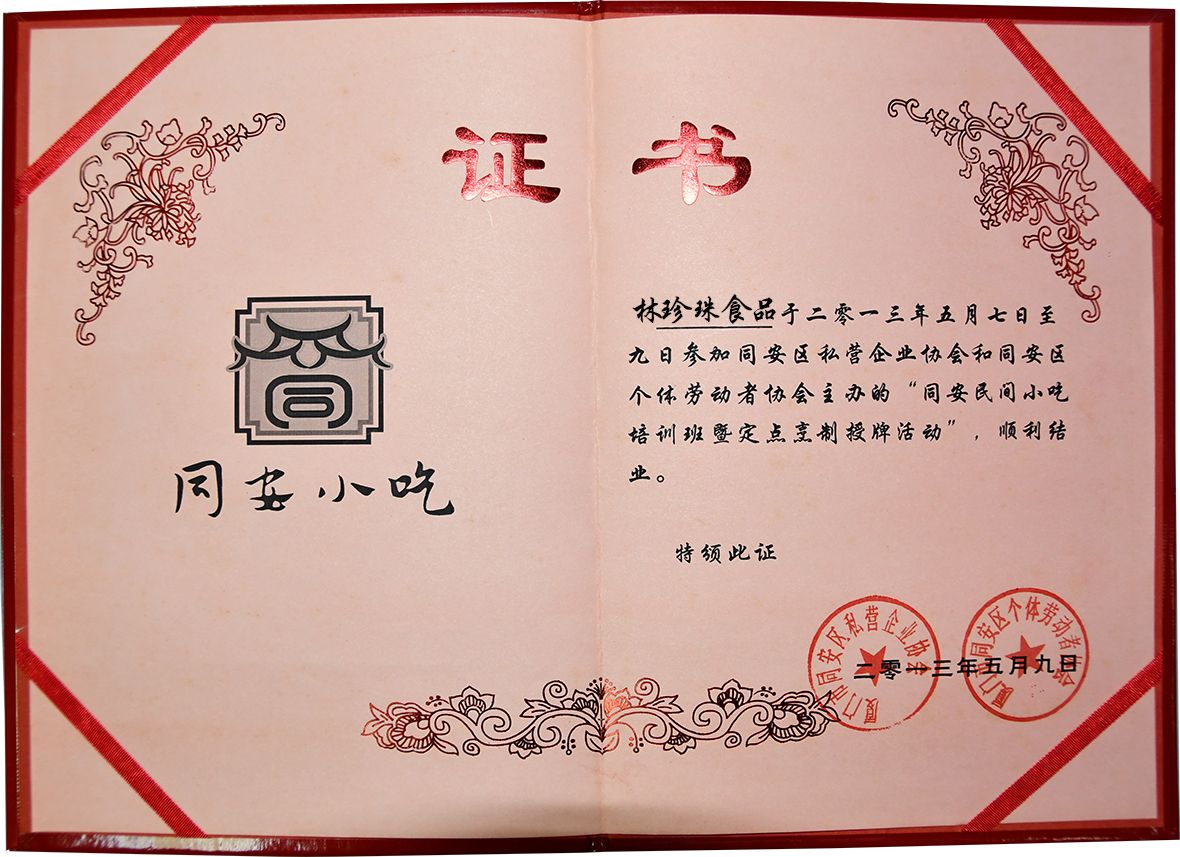 证 书
同安小吃
林珍珠食品于二零一三年五月七日至
九日参加同安区私营企业协会和同安区
个体劳动者协会主办的“同安民间小吃
培训班暨定点烹制授牌活动”，顺利结
业。
特颁此证
厦门市同安区私营企业协会
厦门市同安区个体劳动者协会
二零一三年五月九日